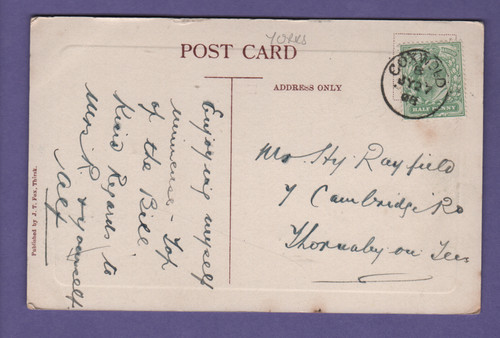 YORKS
POST CARD
ADDRESS ONLY
COXWOLD
JY 27
08
HALFPENNY
Enjoying myself
immense - Top
of the Bill
Kind Regards to
Mrs R & Yourself
Alf
Mr Hy Rayfield
7 Cambridge Ro
Thornaby on Tees
Published by J. T. Fox, Thirsk.